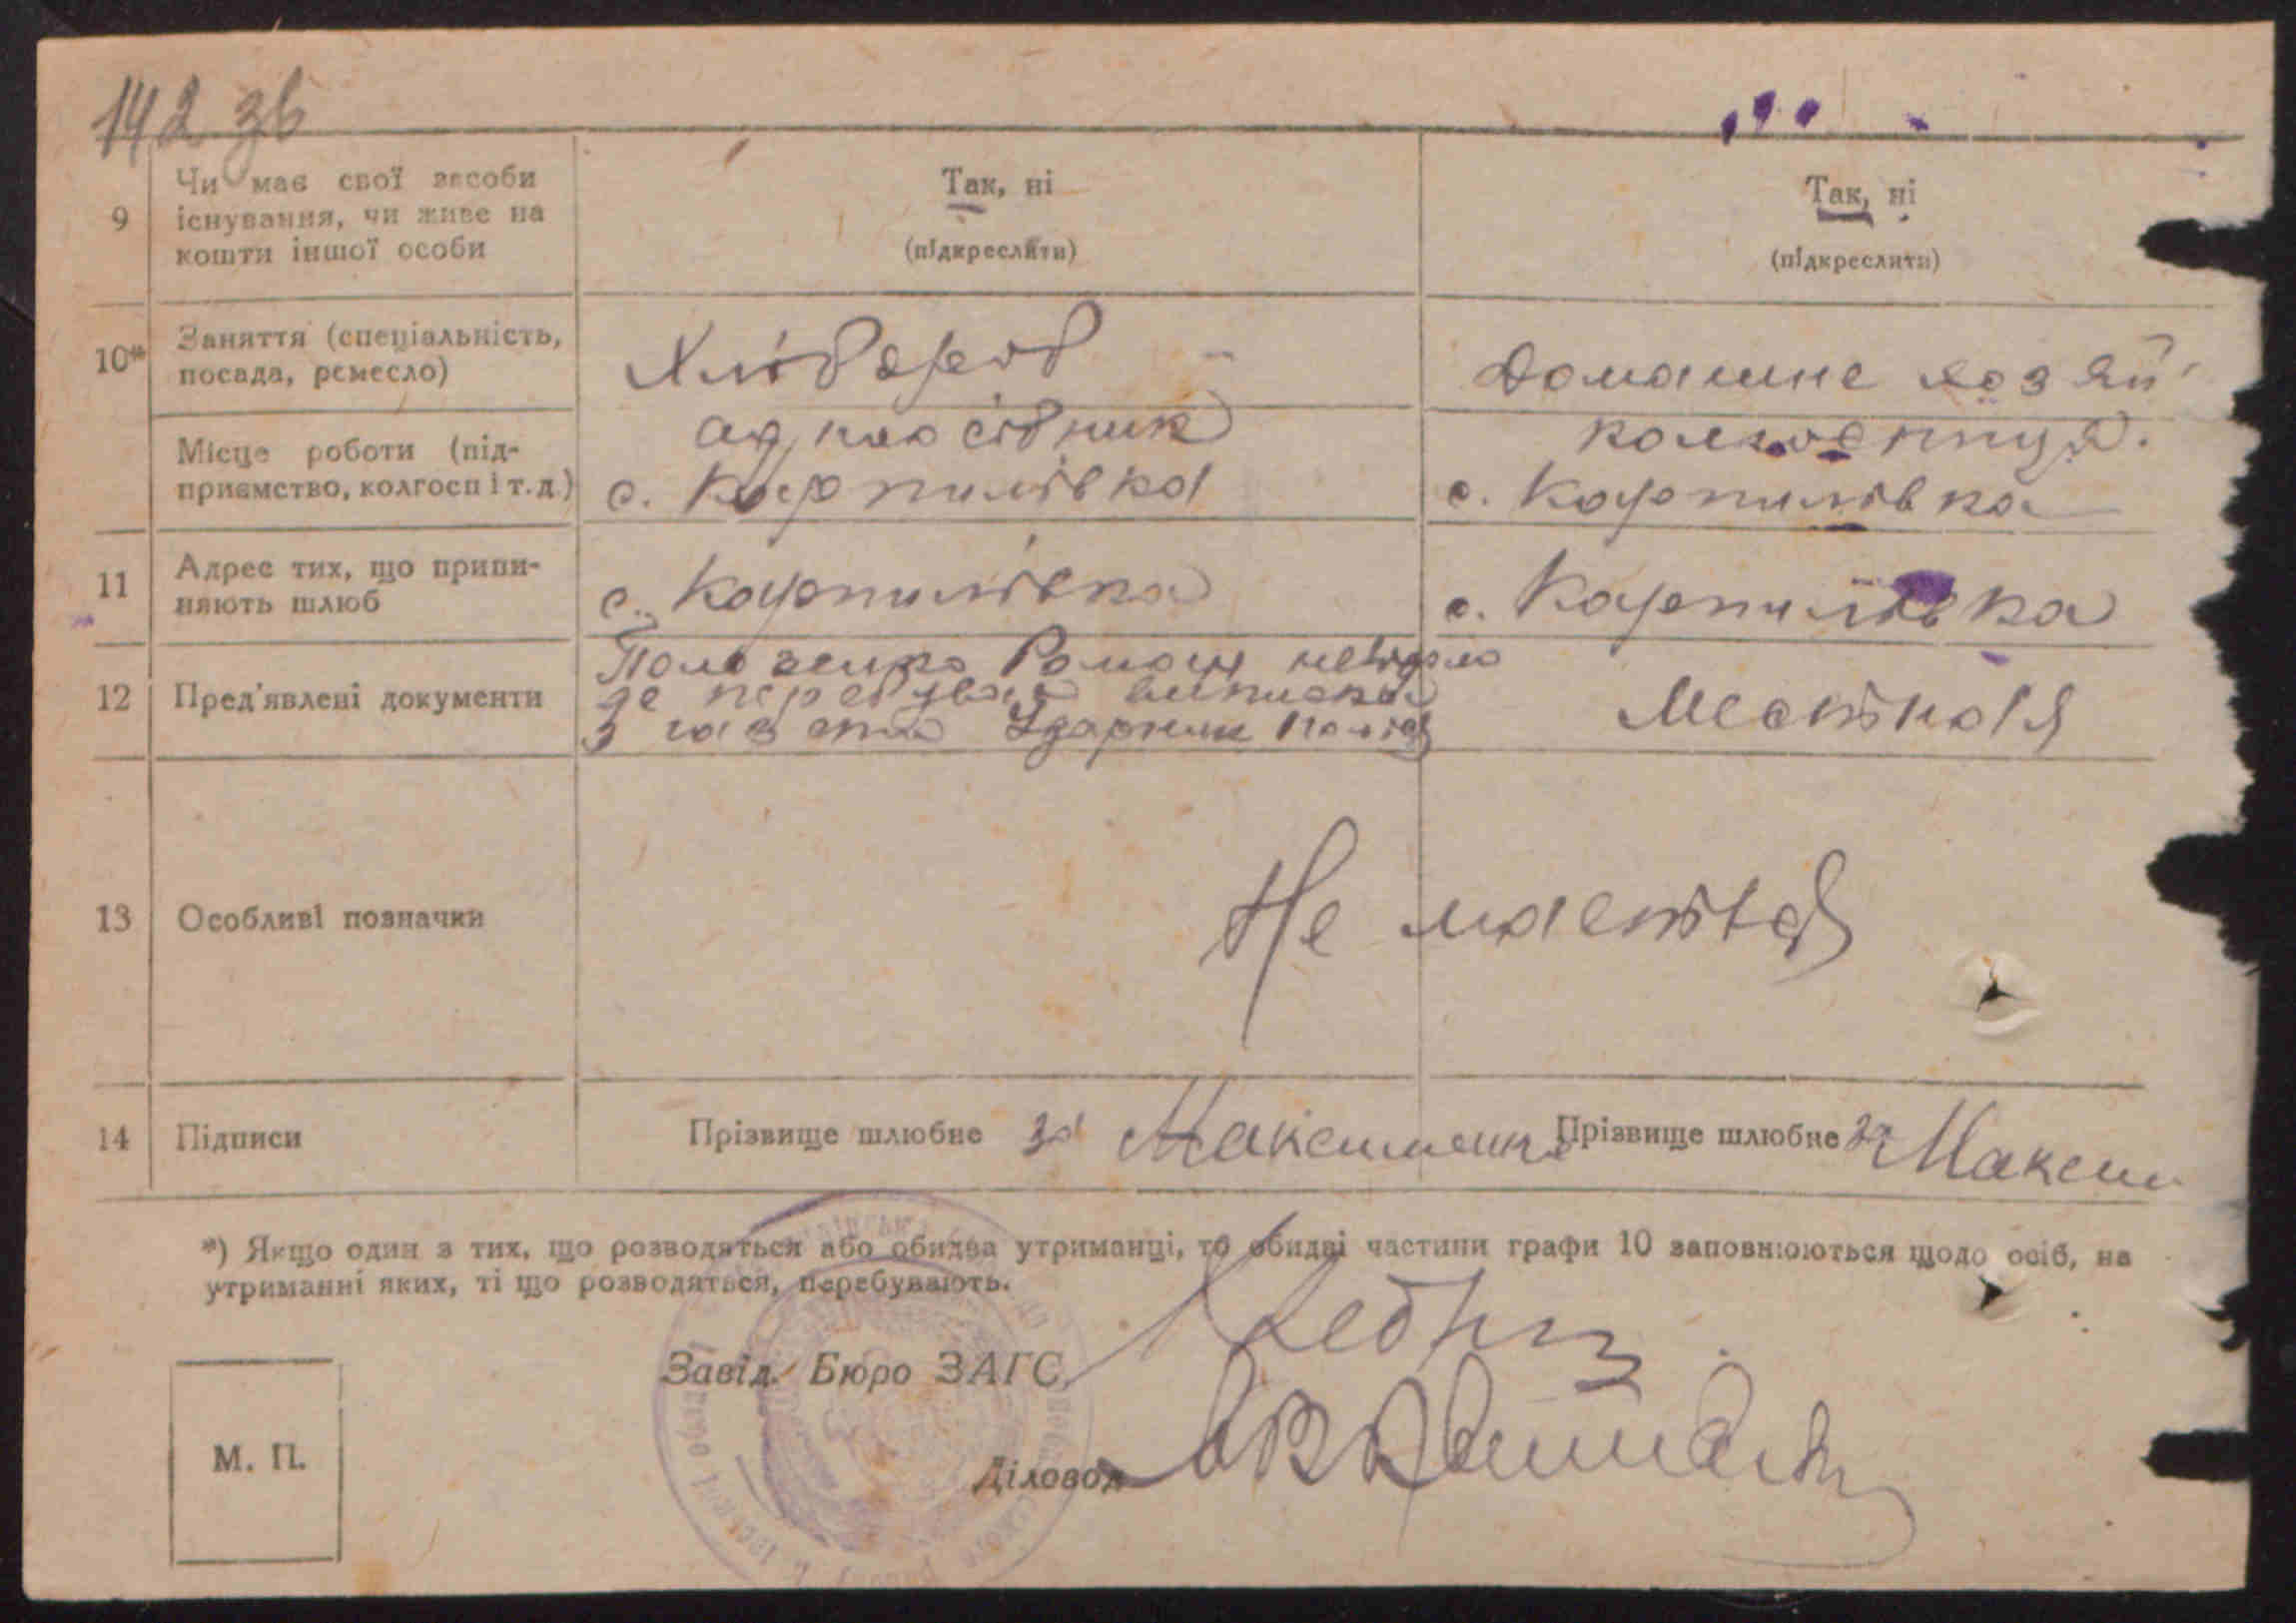 142 зв
9 Чи має свої засоби існування, чи живе на кошти іншої особи
Так, ні
(підкреслити)
Так, ні
(підкреслити)
10* Заняття (спеціальність, посада, ремесло)
Хлібороб
одноосібник
Домашне хозяй
колгоспниця.
Місце роботи (підприємство, колгосп і т. д.)
с. Карпилівка
с. Карпилівка
11 Адрес тих, що припиняють шлюб
с. Карпилівка
с. Карпилівка
12 Пред'явлені документи
Роман невідомо
де перебуває виписка
з газети Ударник
Местная
13 Особливі позначки
Не мается
14 Підписи
Прізвище шлюбне за Максименко
Прізвище шлюбне за Максим
*) Якщо один з тих, що розводяться або обидва утриманці, то обидві частини графи 10 заповнюються щодо осіб, на
утриманні яких, ті що розводяться, перебувають.
Завід. Бюро ЗАГС
Діловод
М. П.